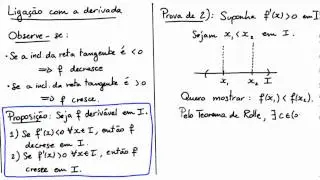 Ligação com a derivada
Observe-se:
• Se a incl. da reta tangente é < 0
⇒ f decresce
• Se a incl. da reta tangente é > 0
⇒ f cresce.
Proposição: Seja f derivável em I.
1) Se f'(x)<0 ∀x∈I, então f
decresce em I.
2) Se f'(x)>0 ∀x∈I, então f
cresce em I.
Prova de 2): Suponha f'(x)>0 em I
Sejam x₁<x₂ em I.
x₁ x₂ I
Quero mostrar: f(x₁) < f(x₂).
Pelo Teorema de Rolle, ∃ c∈(